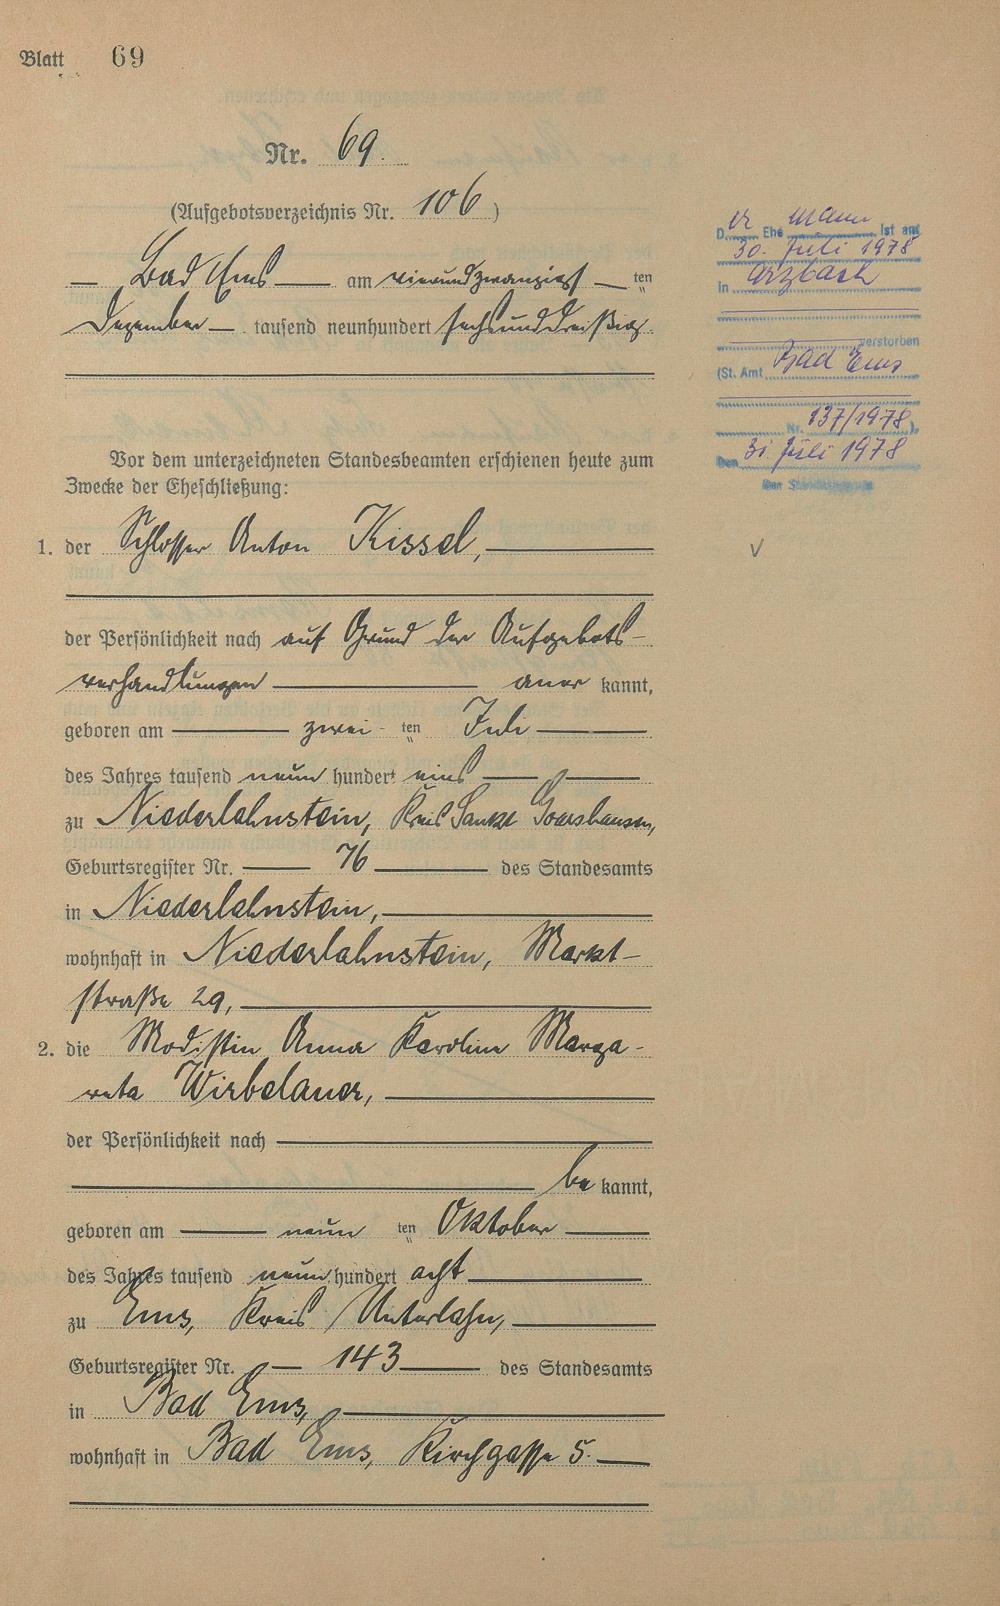 Blatt 69
Nr. 69.
(Aufgebotsverzeichnis Nr. 106)
— Bad Ems — am vierundzwanzigs — ten
Dezember — tausend neunhundert sechsunddreißig.
Vor dem unterzeichneten Standesbeamten erschienen heute zum
Zwecke der Eheschließung:
1. der Schlosser Anton Kissel, —
der Persönlichkeit nach auf Grund der Aufgebots-
verhandlungen — aner kannt,
geboren am — zwei- ten Juli —
des Jahres tausend neun hundert eins —
zu Niederlahnstein, Kreis Sankt Goarshausen,
Geburtsregister Nr. — 76 — des Standesamts
in Niederlahnstein, —
wohnhaft in Niederlahnstein, Markt-
straße 29, —
2. die Modistin Anna Karolina Marga-
reta Wirbelauer, —
der Persönlichkeit nach —
— be kannt,
geboren am — neun ten Oktober —
des Jahres tausend neun hundert acht —
zu Ems, Kreis Unterlahn, —
Geburtsregister Nr. — 143 — des Standesamts
in Bad Ems, —
wohnhaft in Bad Ems, Kirchgasse 5. —
D er Ehe mann ist am
30. Juli 1978
in Arzbach
verstorben
(St. Amt Bad Ems
Nr. 137/1978),
Den 31. Juli 1978
Der Standesbeamte